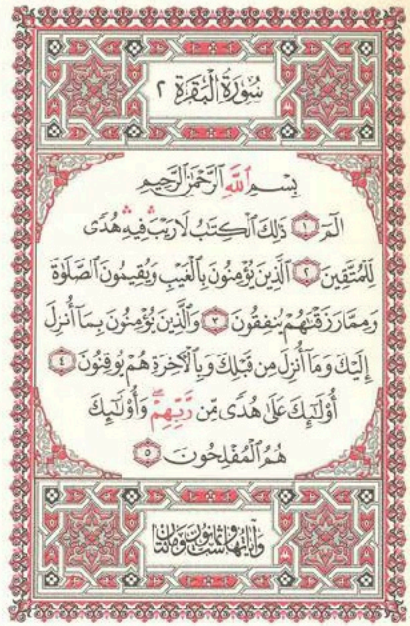 سُورَةُ الْبَقَرَةِ ٢
بِسْمِ اللَّهِ الرَّحْمَٰنِ الرَّحِيمِ
الٓمٓ ١ ذَٰلِكَ ٱلْكِتَٰبُ لَا رَيْبَ ۛ فِيهِ ۛ هُدًى
لِّلْمُتَّقِينَ ٢ ٱلَّذِينَ يُؤْمِنُونَ بِٱلْغَيْبِ وَيُقِيمُونَ ٱلصَّلَوٰةَ
وَمِمَّا رَزَقْنَٰهُمْ يُنفِقُونَ ٣ وَٱلَّذِينَ يُؤْمِنُونَ بِمَآ أُنزِلَ
إِلَيْكَ وَمَآ أُنزِلَ مِن قَبْلِكَ وَبِٱلْءَاخِرَةِ هُمْ يُوقِنُونَ ٤
أُو۟لَٰٓئِكَ عَلَىٰ هُدًى مِّن رَّبِّهِمْ ۖ وَأُو۟لَٰٓئِكَ
هُمُ ٱلْمُفْلِحُونَ ٥
وَآيَاتُهَا سِتٌّ وَثَمَانُونَ وَمِائَتَانِ